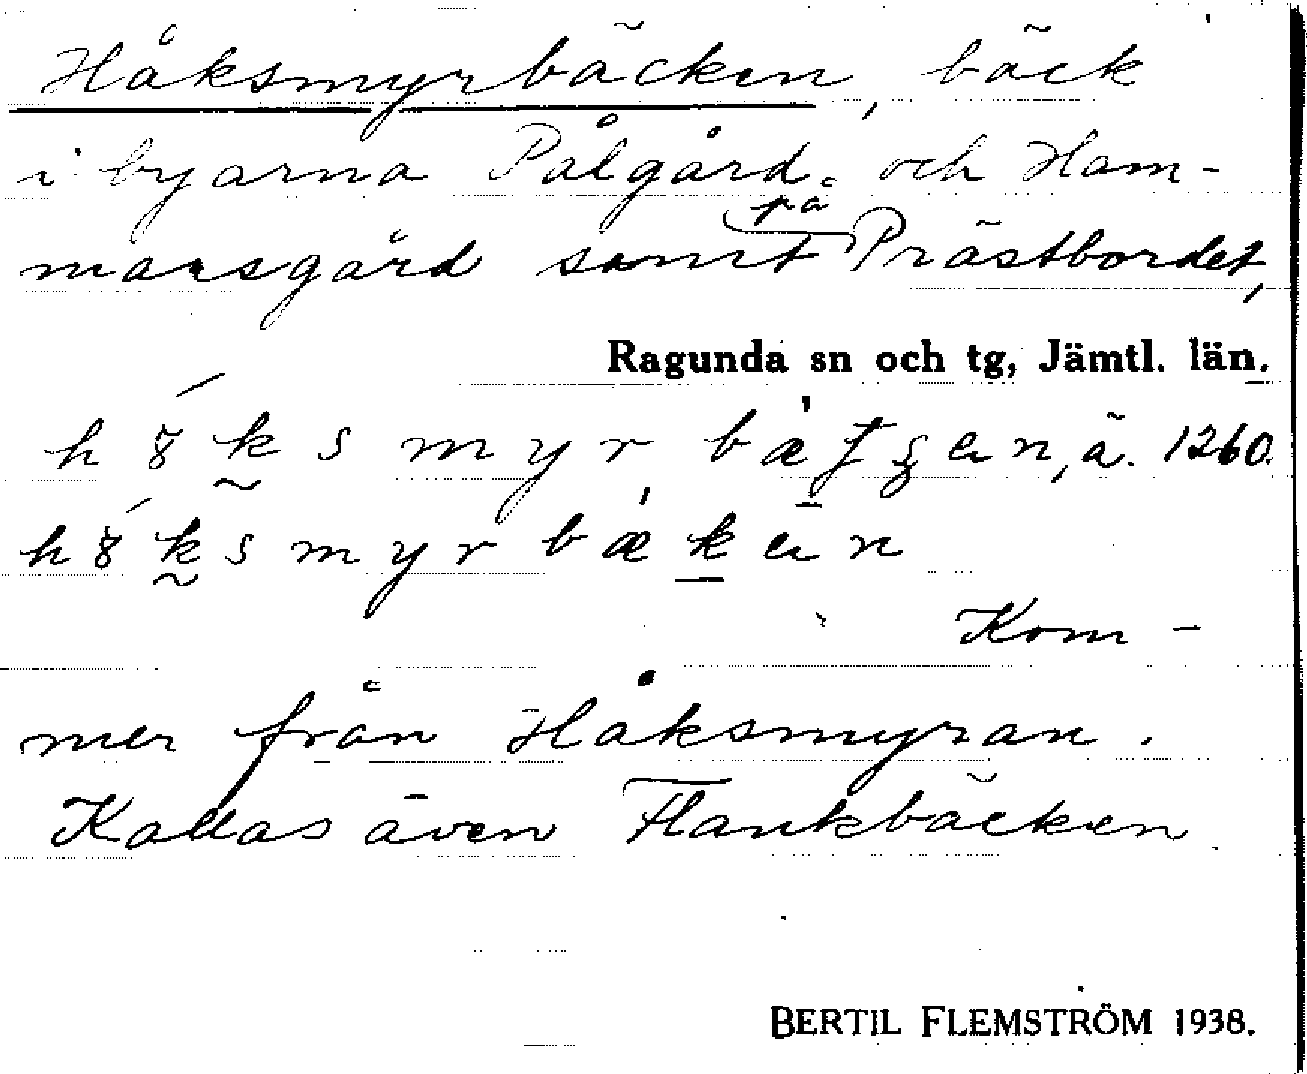 Håksmyrbäcken, bäck
i byarna Pålgård och Ham-
marsgård samt på Prästbordet,
Ragunda sn och tg, Jämtl. län.
ä. 1260.
Kom-
mer från Håksmyran.
Kallas även Flankbäcken
BERTIL FLEMSTRÖM 1938.